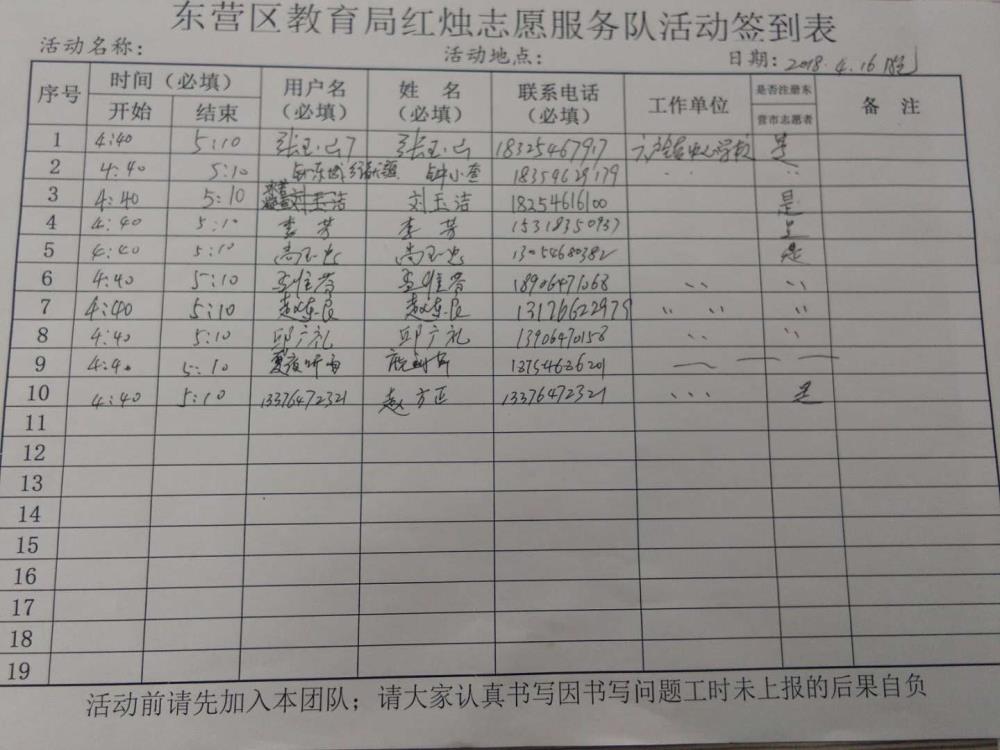 东营区教育局红烛志愿服务队活动签到表
活动名称： 活动地点： 日期：2018.4.16
序号 时间（必填） 用户名（必填） 姓名（必填） 联系电话（必填） 工作单位 是否注册东营市志愿者 备注
开始 结束
1 4:40 5:10 张玉山7 张玉山 18325467917 六户镇中心学校 是
2 4:40 5:10 钟小奎 18354629179 〃 〃
3 4:40 5:10 刘玉洁 刘玉洁 18254616100 是
4 4:40 5:10 李芳 李芳 15318350937 是
5 4:40 5:10 尚玉忠 尚玉忠 13054680382 是
6 4:40 5:10 18906471068 〃 〃
7 4:40 5:10 赵东良 赵东良 13176622979 〃 〃 〃
8 4:40 5:10 邱广礼 邱广礼 13906470158 〃 〃
9 4:40 5:10 夏夜听雨 137546636201
10 4:40 5:10 13376472321 赵方正 13376472321 〃 是
11
12
13
14
15
16
17
18
19
活动前请先加入本团队；请大家认真书写因书写问题工时未上报的后果自负